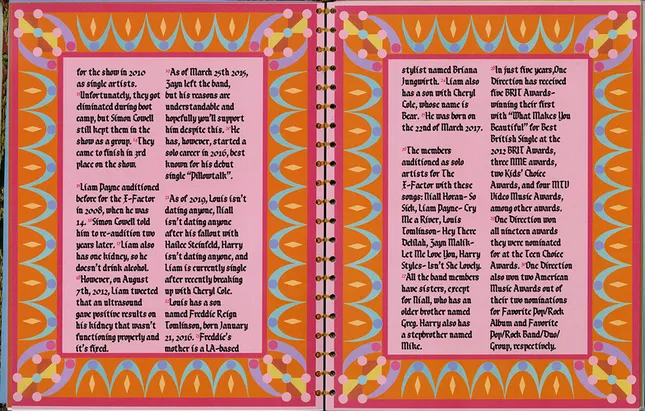 for the show in 2010
as single artists.
Unfortunately, they got
eliminated during boot
camp, but Simon Cowell
still kept them in the
show as a group. They
came to finish in 3rd
place on the show.
Liam Payne auditioned
before for the X-Factor
in 2008, when he was
14. Simon Cowell told
him to re-audition two
years later. Liam also
has one kidney, so he
doesn't drink alcohol.
However, on August
7th, 2012, Liam tweeted
that an ultrasound
gave positive results on
his kidney that wasn't
functioning properly and
it's fired.
As of March 25th 2015,
Zayn left the band,
but his reasons are
understandable and
hopefully you'll support
him despite this. He
has, however, started a
solo career in 2016, best
known for his debut
single "Pillowtalk".
As of 2019, Louis isn't
dating anyone, Niall
isn't dating anyone
after his fallout with
Hailee Steinfeld, Harry
isn't dating anyone, and
Liam is currently single
after recently breaking
up with Cheryl Cole.
Louis has a son
named Freddie Reign
Tomlinson, born January
21, 2016. Freddie's
mother is a LA-based
stylist named Briana
Jungwirth. Liam also
has a son with Cheryl
Cole, whose name is
Bear. He was born on
the 22nd of March 2017.
The members
auditioned as solo
artists for The
X-Factor with these
songs: Niall Horan- So
Sick, Liam Payne- Cry
Me a River, Louis
Tomlinson- Hey There
Delilah, Zayn Malik-
Let Me Love You, Harry
Styles- Isn't She Lovely.
All the band members
have sisters, except
for Niall, who has an
older brother named
Greg. Harry also has
a stepbrother named
Mike.
In just five years,One
Direction has received
five BRIT Awards-
winning their first
with "What Makes You
Beautiful" for Best
British Single at the
2012 BRIT Awards,
three NME awards,
two Kids' Choice
Awards, and four MTV
Video Music Awards,
among other awards.
One Direction won
all nineteen awards
they were nominated
for at the Teen Choice
Awards. One Direction
also won two American
Music Awards out of
their two nominations
for Favorite Pop/Rock
Album and Favorite
Pop/Rock Band/Duo/
Group, respectively.